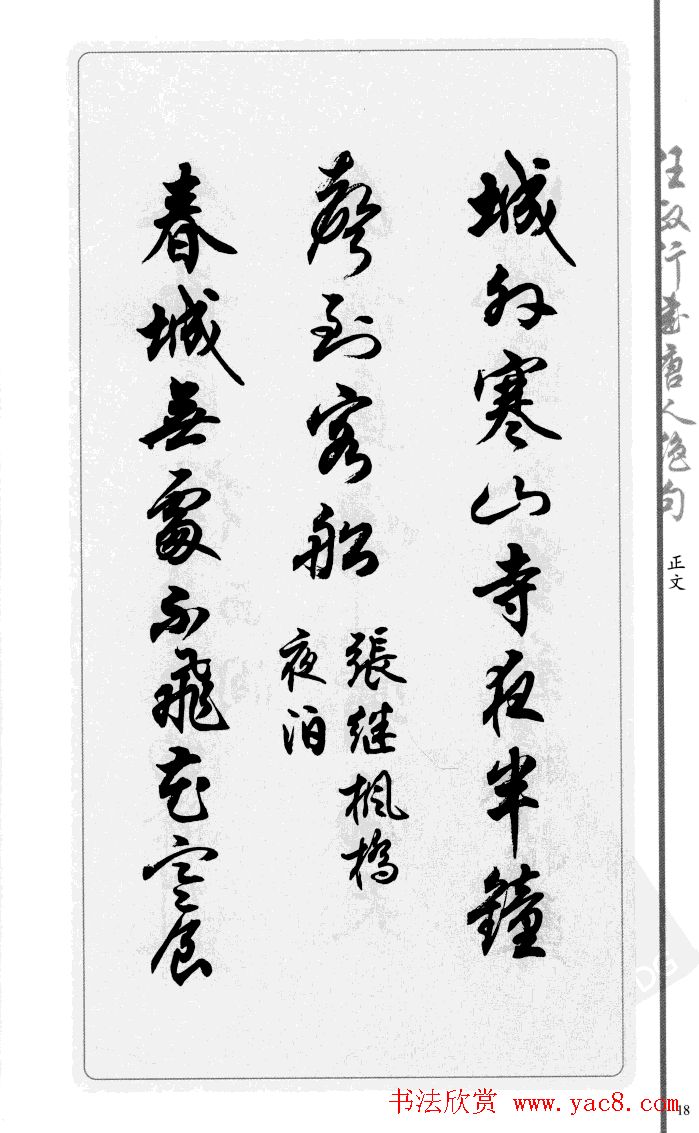 城外寒山寺夜半鐘
聲到客船
張继楓橋
夜泊
春城無處不飛花寒食
任政行書唐人绝句
正文
书法欣赏 www.yac8.com
18